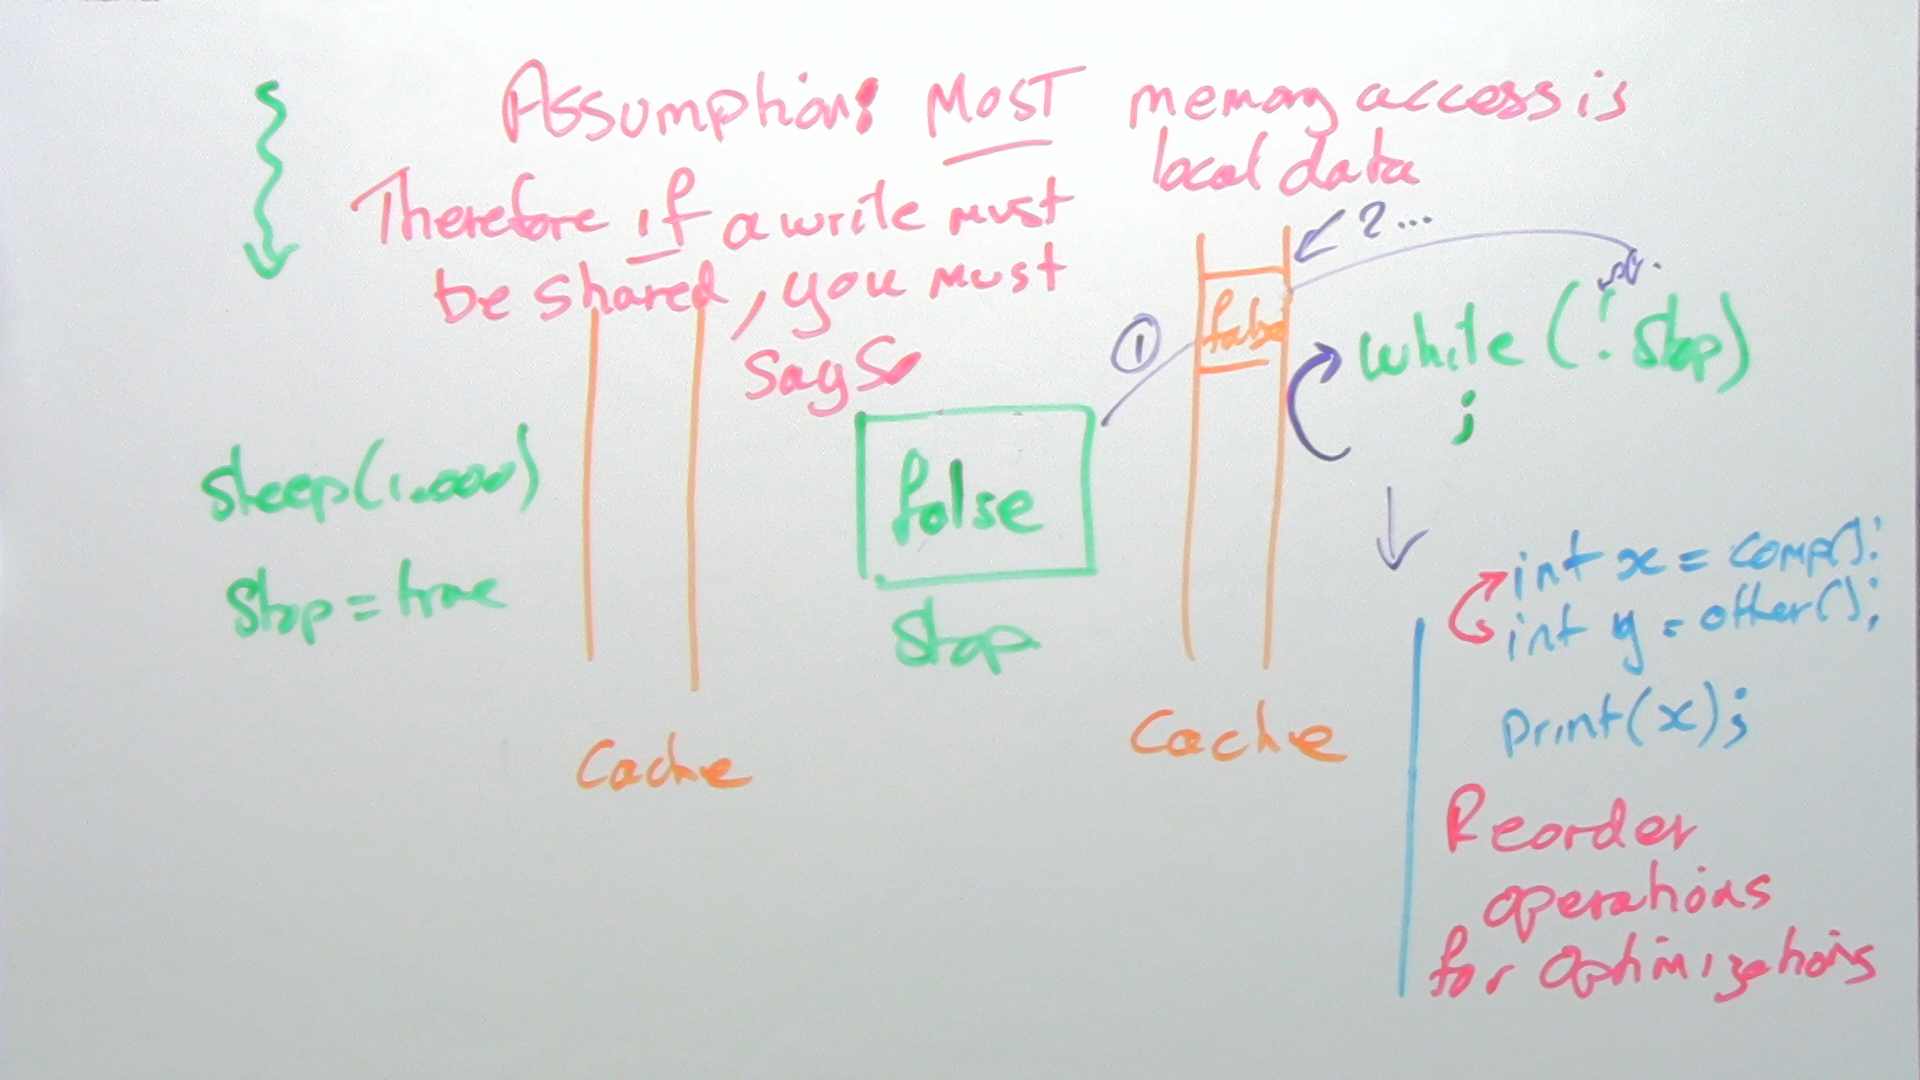 Assumption: MOST memory access is
local data
Therefore if a write must
be shared, you must
say so
2...
①
false
while (! stop)
;
sleep(1,000)
stop = true
false
stop
Cache
Cache
int x = comp();
int y = other();
print(x);
Reorder
operations
for optimizations